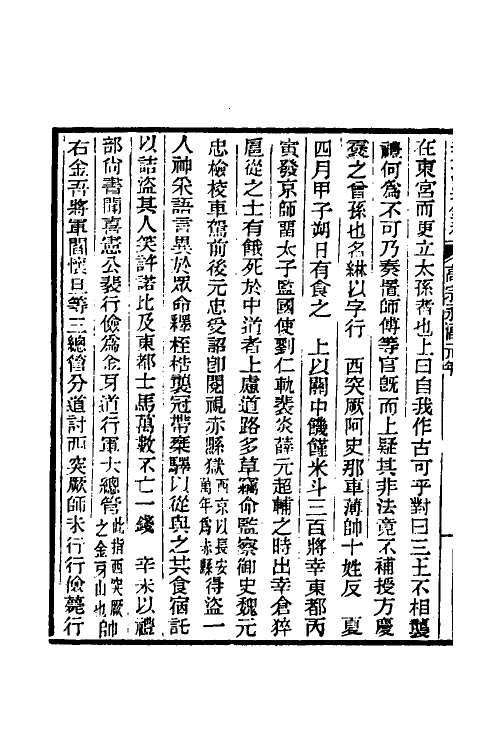 高宗永淳元年
在東宮而更立太孫者也上曰自我作古可乎對曰三王不相襲
禮何為不可乃奏置師傅等官既而上疑其非法竟不補授方慶
襃之曾孫也名綝以字行　西突厥阿史那車薄帥十姓反　夏
四月甲子朔日有食之　上以關中饑饉米斗三百將幸東都丙
寅發京師留太子監國使劉仁軌裴炎薛元超輔之時出幸倉猝
扈從之士有餓死於中道者上慮道路多草竊命監察御史魏元
忠檢校車駕前後元忠受詔卽閱視赤縣獄西京以長安萬年為赤縣得盜一
人神采語言異於眾命釋桎梏襲冠帶乘驛以從與之共食宿託
以詰盜其人笑許諾比及東都士馬萬數不亡一錢　辛未以禮
部尚書聞喜憲公裴行儉為金牙道行軍大總管此指西突厥之金牙山也帥
右金吾將軍閻懷旦等三總管分道討西突厥師未行行儉薨行